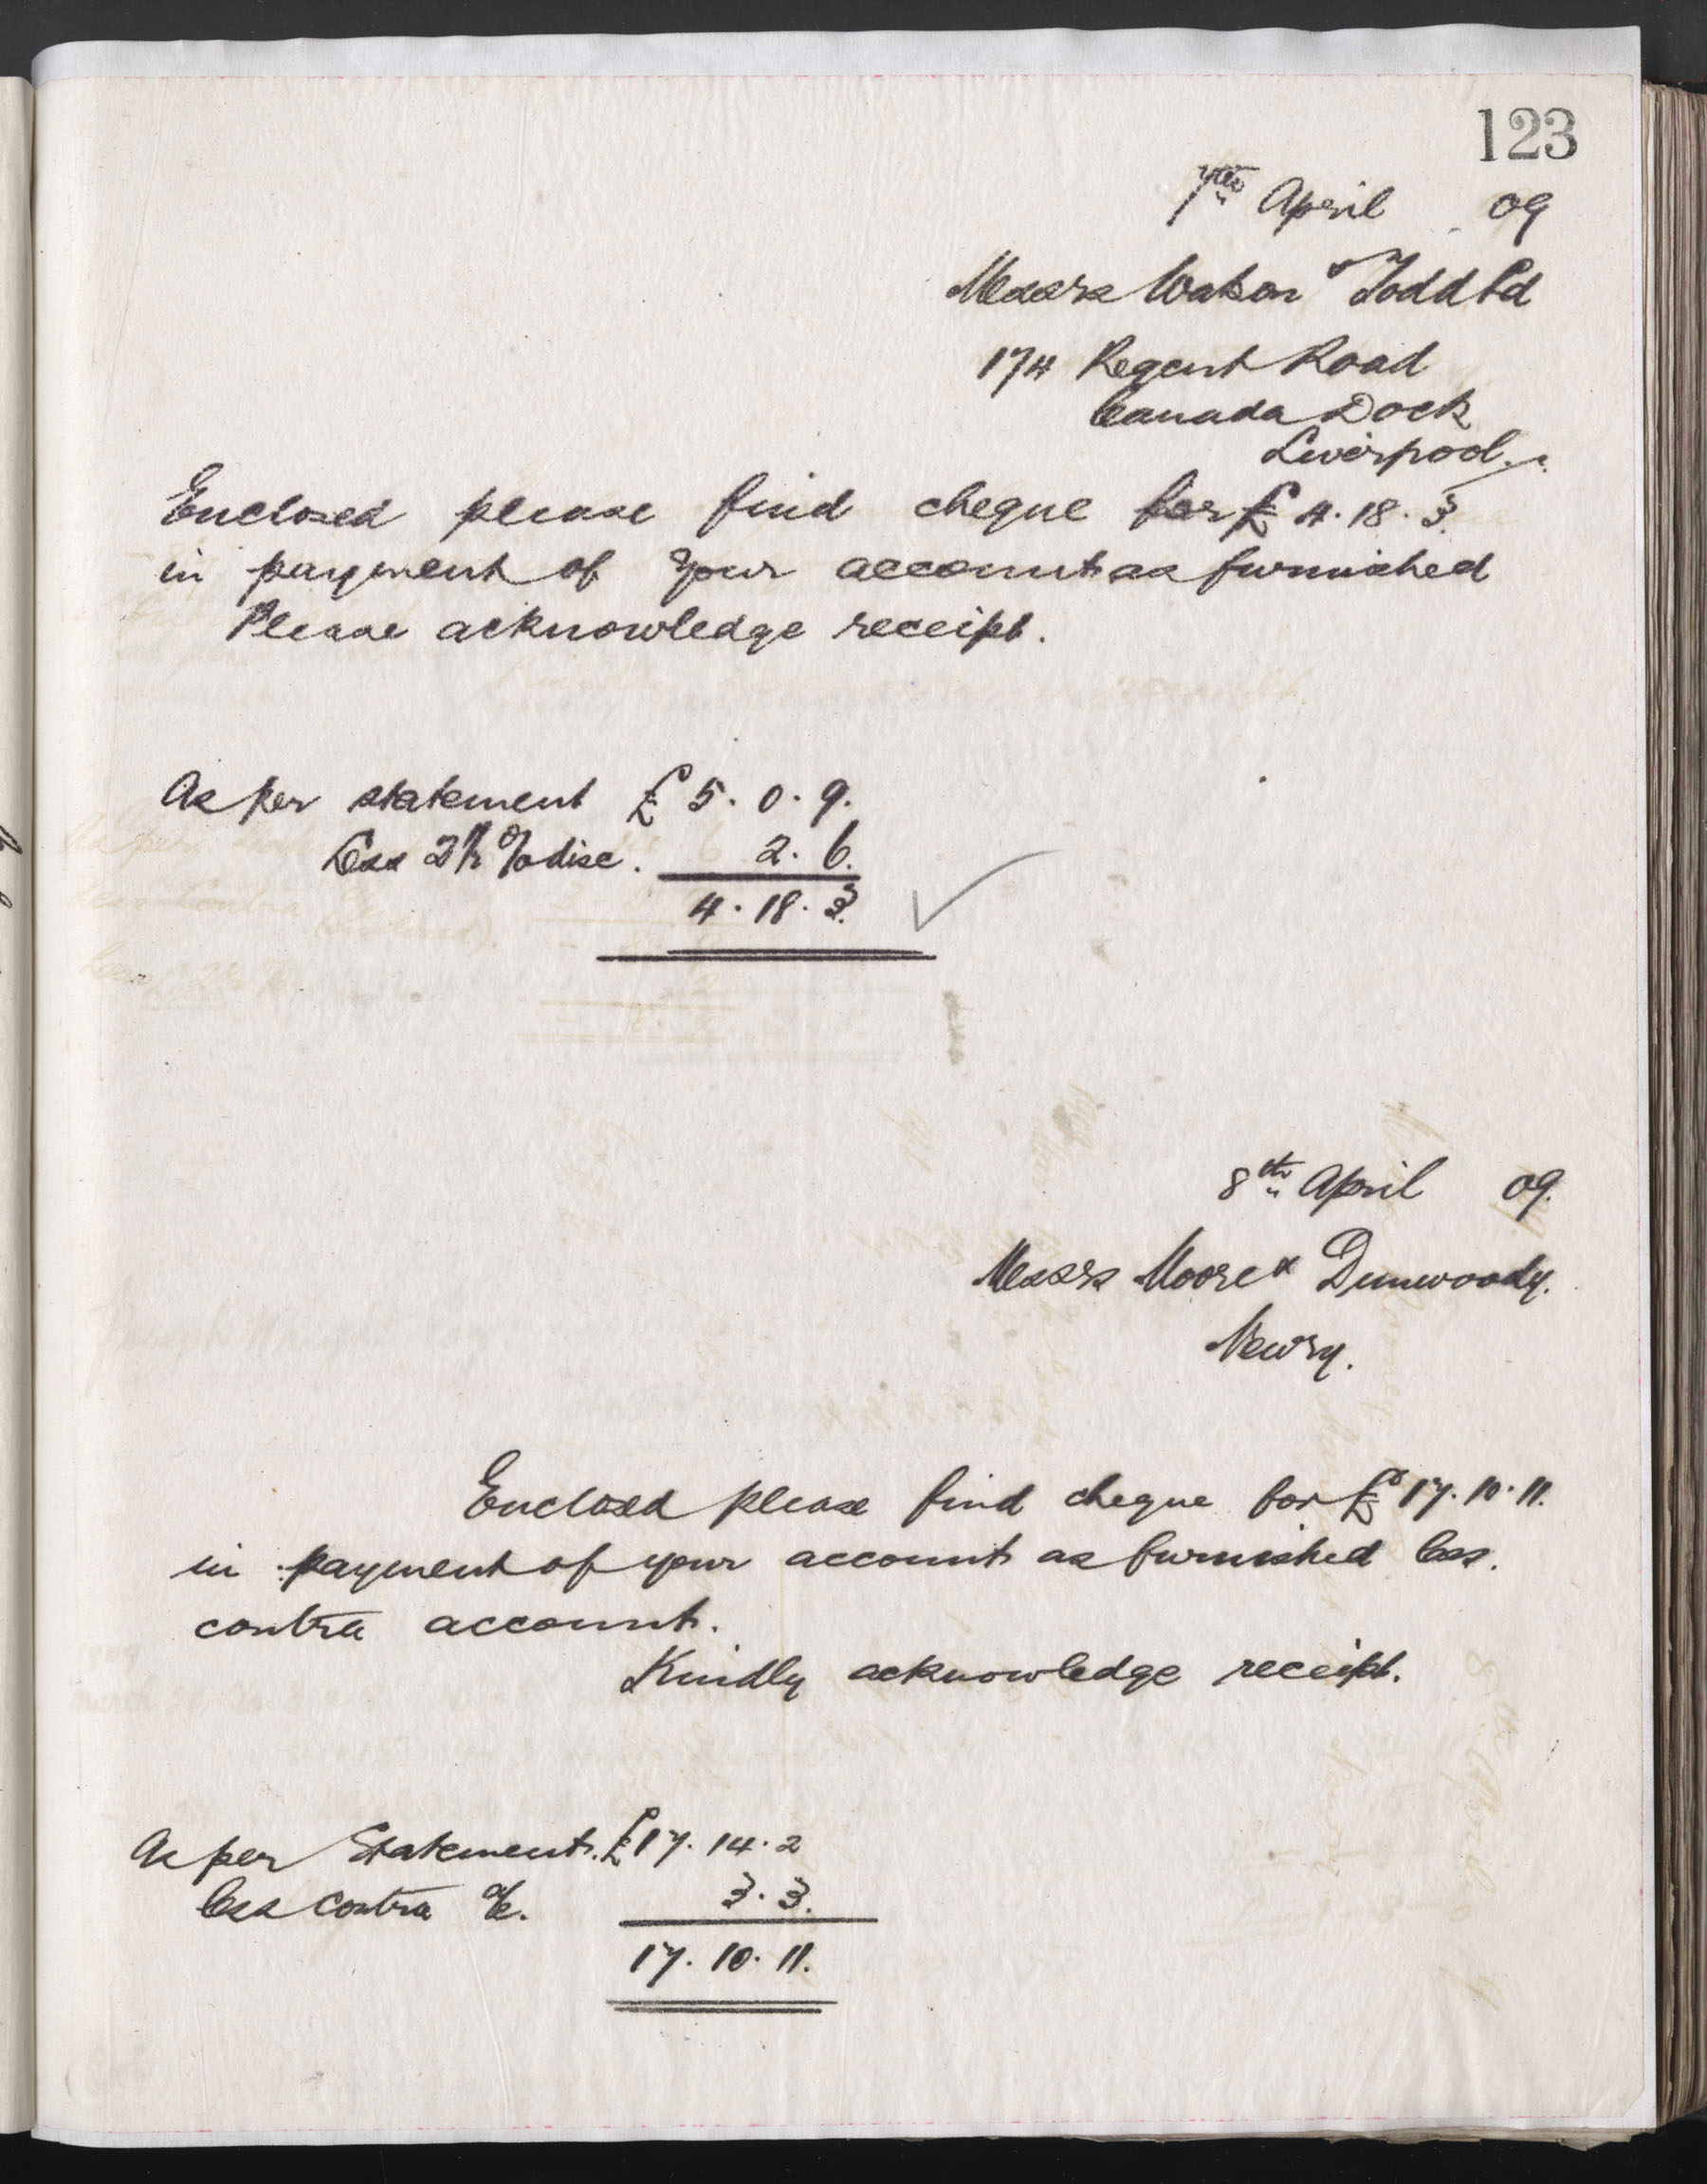 123
7th April 09
Messrs Watson & Todd Ld
174 Regent Road
Canada Dock
Liverpool.
Enclosed please find cheque for £4.18.3.
in payment of your account as furnished
Please acknowledge receipt.
As per statement £5.0.9.
Less 2½% disc. 2.6.
4.18.3.
8th April 09.
Messrs Moore & Dunwoody.
Newry.
Enclosed please find cheque for £17.10.11.
in payment of your account as furnished less.
contra account.
Kindly acknowledge receipt.
As per Statement. £17.14.2
less contra a/c. 3.3.
17.10.11.